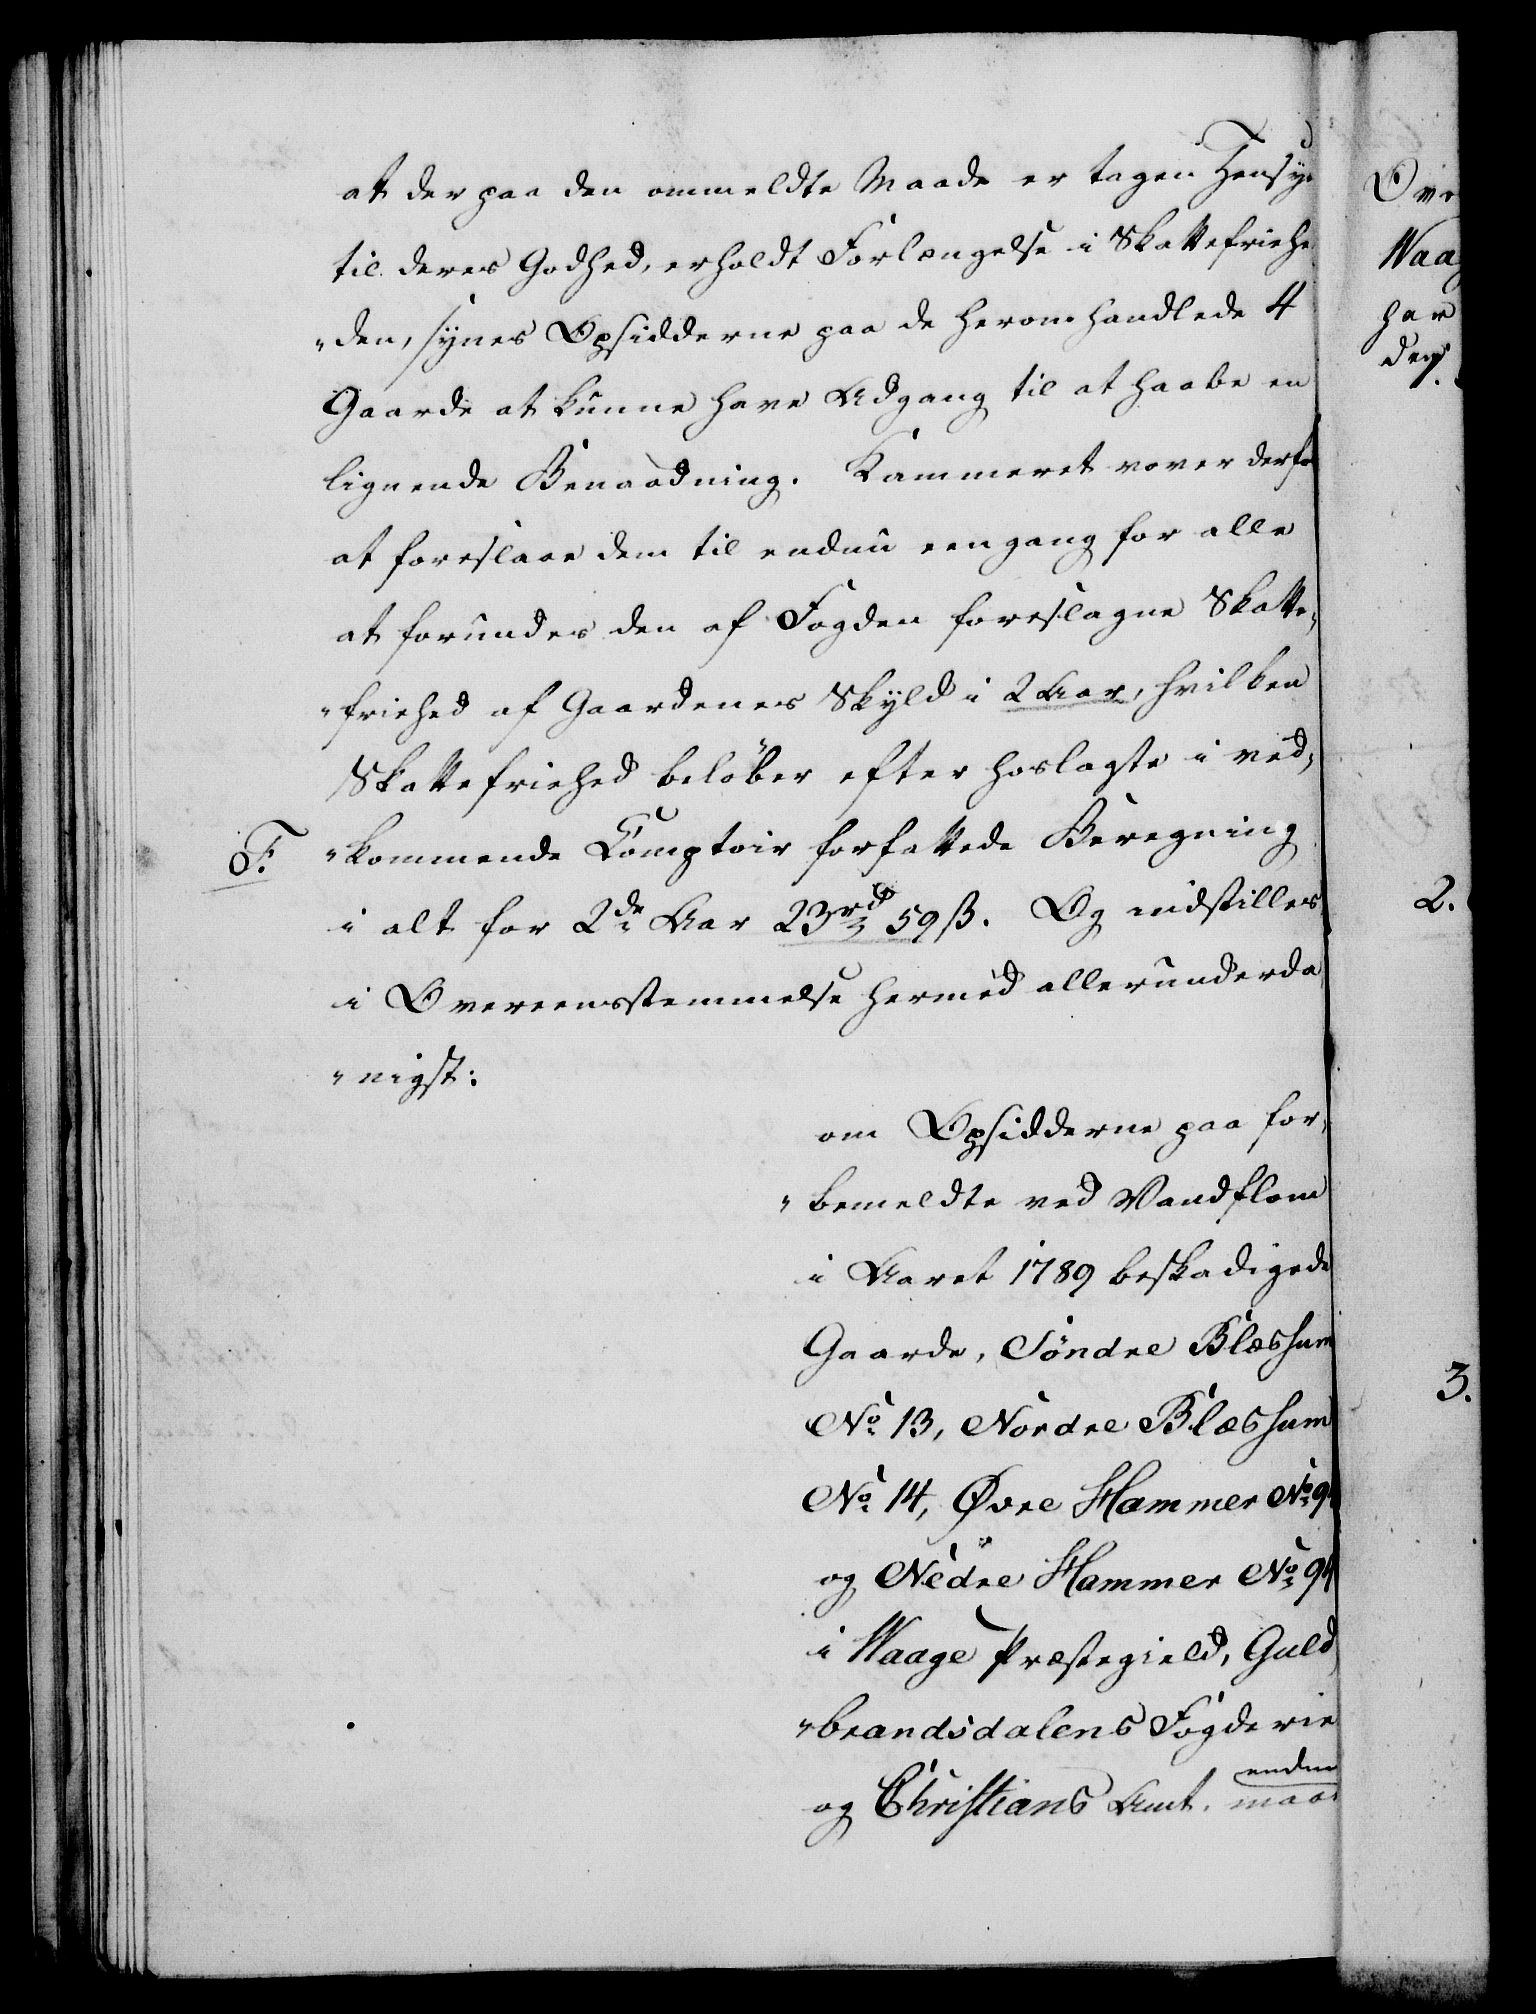 at der paa den ommeldte Maade er tagen Hensyn
til deres Godhed, erholdt Forlængelse i Skattefriehe
"den, synes Opsidderne paa de heromhandlede 4
Gaarde at kunne have Adgang til at haabe en
lignende Benaadning. Kammeret vover derfo
at foreslaae dem til endnu eengang for alle
at forundes den af Fogden foreslagne Skatte„
"friehed af Gaardenes Skyld i 2 Aar, hvilken
Skattefriehed beløber efter hoslagte i ved„
F. "kommende Comptoir forfattede Beregning
i alt for 2de Aar 23 rd 59 ß. Og indstilles
i Overeensstemmelse hermed allerunderda
"nigst:
om Opsidderne paa for„
"bemeldte ved Vandflom
i Aaret 1789 beskadigede
Gaarde, Söndre Blæshum
No. 13, Nordre Blæshum
No. 14, Øvre Hammer No. 9
og Nedre Hammer No. 94
i Waage Præstegield, Guld
"brandsdalens Fogderie
og Christians Amt. endnu
maae
Ove
Waa
har
2.
3.